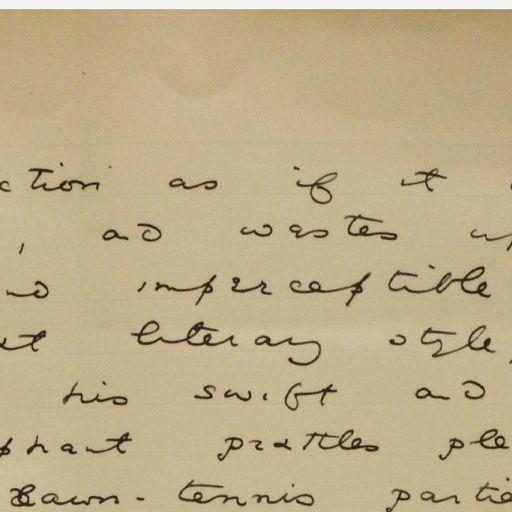 ction as if it
, and wastes up
nd imperceptible
literary style,
his swift and
phant prattles ple
Lawn-tennis partie